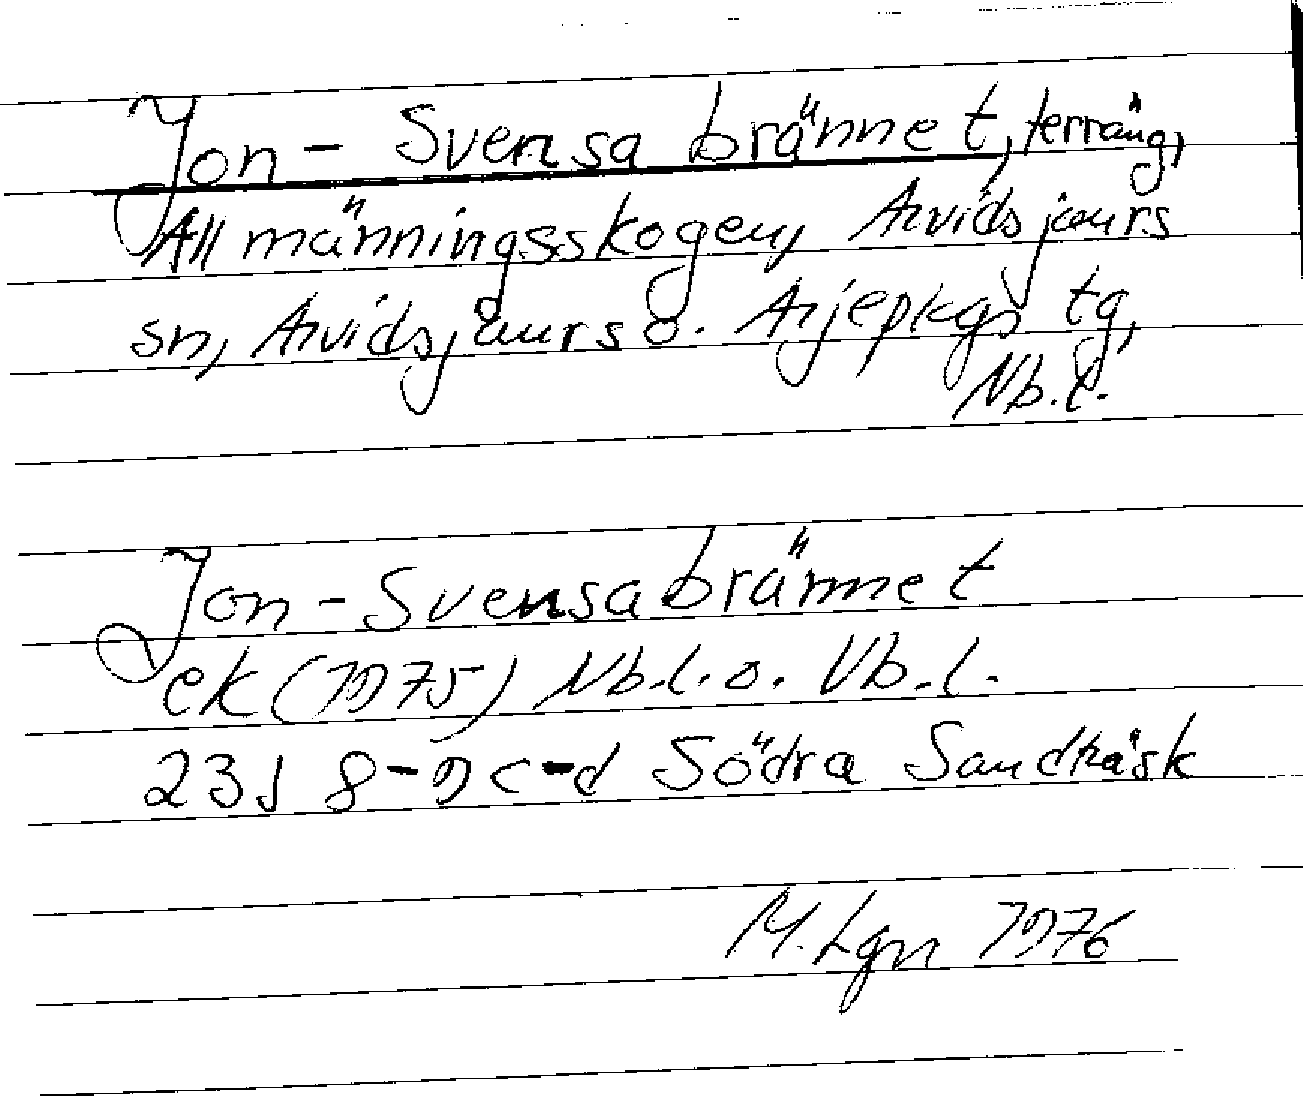 Jon-Svensabrännet, terräng,
Allmänningsskogen, Arvidsjaurs
sn, Arvidsjaurs o. Arjeplogs tg,
Nb.l.
Jon-Svensabrännet
ek (1975) Nb.l. o. Vb.l.
23J 8-9 c-d Södra Sandträsk
M.Lgn 1976